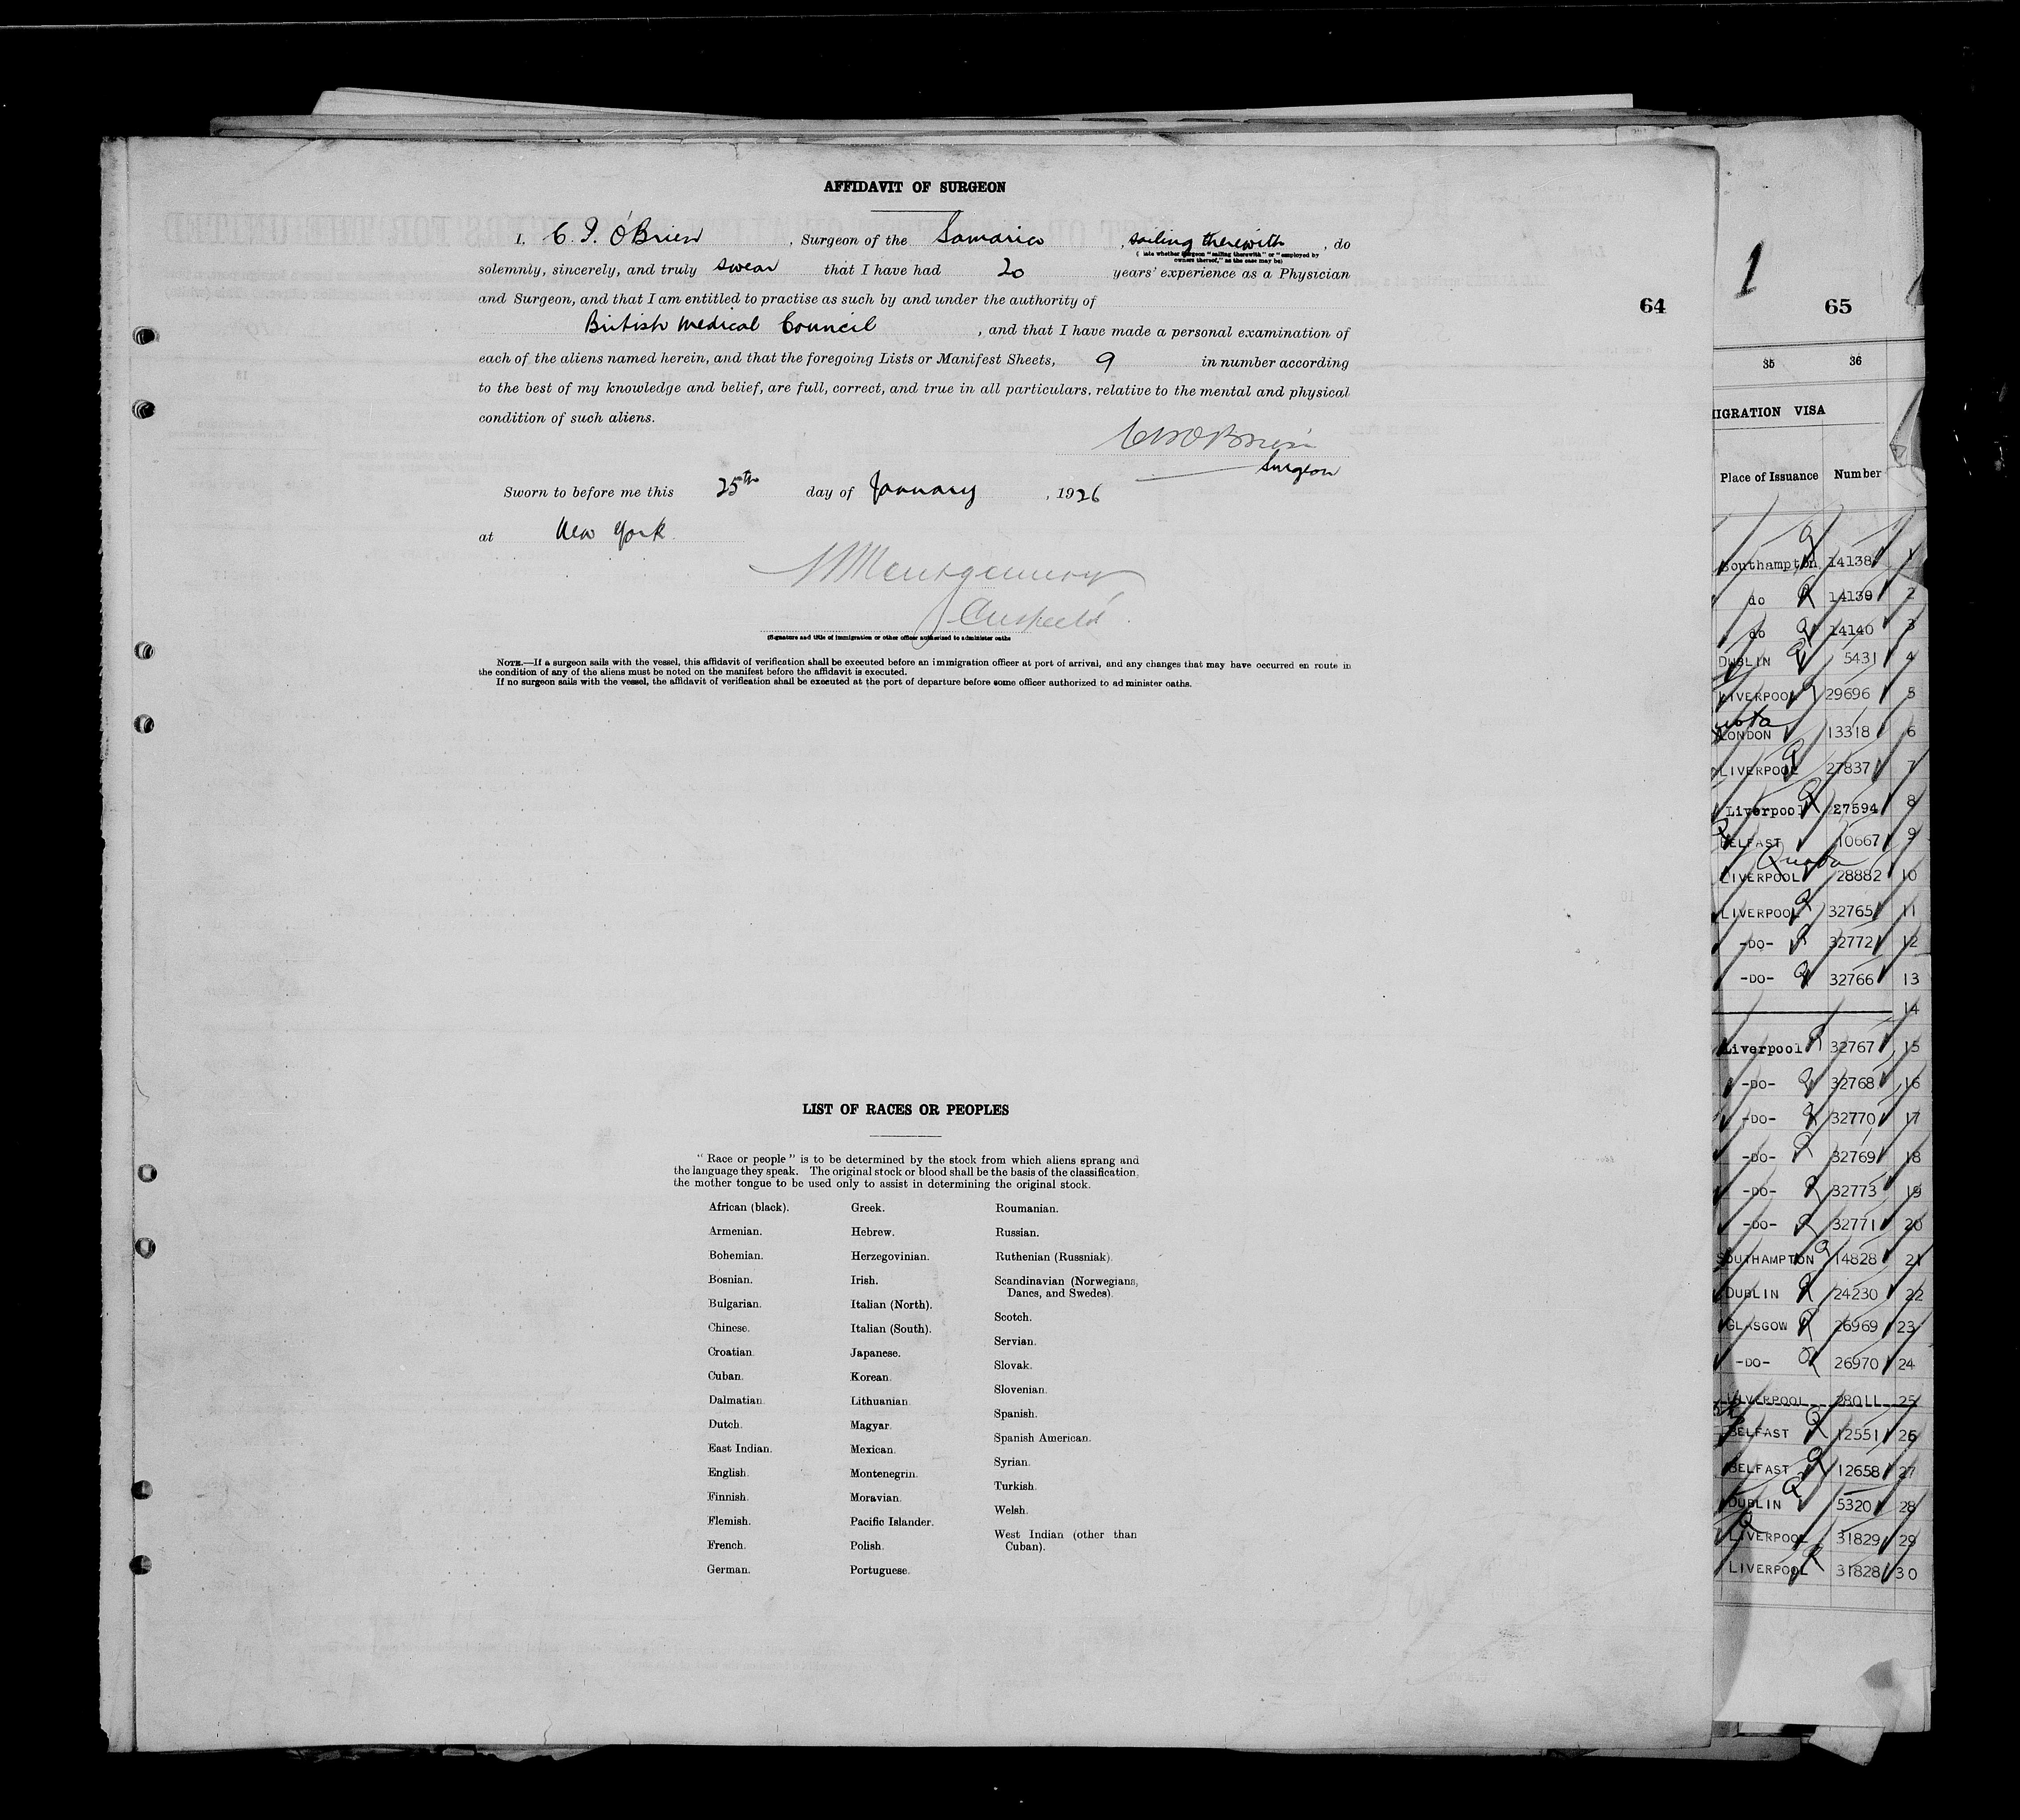 AFFIDAVIT OF SURGEON
I, C. P. O'Brien, Surgeon of the Samaria, sailing therewith, do
( tate whether surgeon "sailing therewith" or "employed by
owners thereof," as the case may be)
solemnly, sincerely, and truly swear that I have had 20 years' experience as a Physician
and Surgeon, and that I am entitled to practise as such by and under the authority of
British Medical Council, and that I have made a personal examination of
each of the aliens named herein, and that the foregoing Lists or Manifest Sheets, 9 in number according
to the best of my knowledge and belief, are full, correct, and true in all particulars, relative to the mental and physical
condition of such aliens.
O'Brien
Surgeon
Sworn to before me this 25th day of January, 1926
at New York
Montgomery
(Signature and title of immigration or other officer authorized to administer oaths
NOTE.—If a surgeon sails with the vessel, this affidavit of verification shall be executed before an immigration officer at port of arrival, and any changes that may have occurred en route in
the condition of any of the aliens must be noted on the manifest before the affidavit is executed.
If no surgeon sails with the vessel, the affidavit of verification shall be executed at the port of departure before some officer authorized to administer oaths.
64
LIST OF RACES OR PEOPLES
"Race or people" is to be determined by the stock from which aliens sprang and
the language they speak. The original stock or blood shall be the basis of the classification,
the mother tongue to be used only to assist in determining the original stock.
African (black).
Armenian.
Bohemian.
Bosnian.
Bulgarian.
Chinese.
Croatian.
Cuban.
Dalmatian.
Dutch.
East Indian.
English.
Finnish.
Flemish.
French.
German.
Greek.
Hebrew.
Herzegovinian.
Irish.
Italian (North).
Italian (South).
Japanese.
Korean.
Lithuanian.
Magyar.
Mexican.
Montenegrin.
Moravian.
Pacific Islander.
Polish.
Portuguese.
Roumanian.
Russian.
Ruthenian (Russniak).
Scandinavian (Norwegians,
Danes, and Swedes).
Scotch.
Servian.
Slovak.
Slovenian.
Spanish.
Spanish American.
Syrian.
Turkish.
Welsh.
West Indian (other than
Cuban).
1
65
35 36
IGRATION VISA
Place of Issuance Number
Southampton 14138 1
do 14139 2
do 14140 3
DUBLIN 5431 4
LIVERPOOL 29696 5
LONDON 13318 6
LIVERPOOL 27837 7
Liverpool 27594 8
BELFAST 10667 9
LIVERPOOL 28882 10
LIVERPOOL 32765 11
-DO- 32772 12
-DO- 32766 13
14
Liverpool 32767 15
-DO- 32768 16
-DO- 32770 17
-DO- 32769 18
-DO- 32773 19
-DO- 32771 20
SOUTHAMPTON 14828 21
DUBLIN 24230 22
GLASGOW 26969 23
-DO- 26970 24
LIVERPOOL 28011 25
BELFAST 12551 26
BELFAST 12658 27
DUBLIN 5320 28
LIVERPOOL 31829 29
LIVERPOOL 31828 30